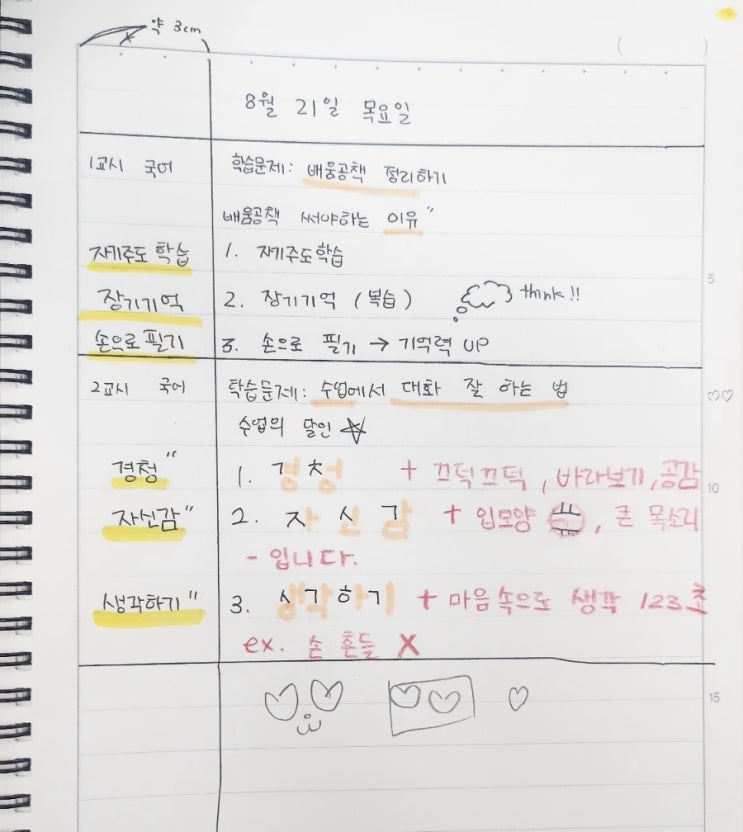 약 3cm
8월 21일 목요일
1교시 국어 학습문제: 배움공책 정리하기
배움공책 써야하는 이유"
자기주도 학습 1. 자기주도학습
장기기억 2. 장기기억 (복습) think!!
손으로 필기 3. 손으로 필기 → 기억력 UP
5
2교시 국어 학습문제: 수업에서 대화 잘 하는 법
수업의 달인
경청" 1. 경청 + 끄덕끄덕, 바라보기, 공감
10
자신감" 2. 자신감 + 입모양, 큰 목소리
- 입니다.
생각하기" 3. 생각하기 + 마음속으로 생각 123초
ex. 손 흔들 X
15